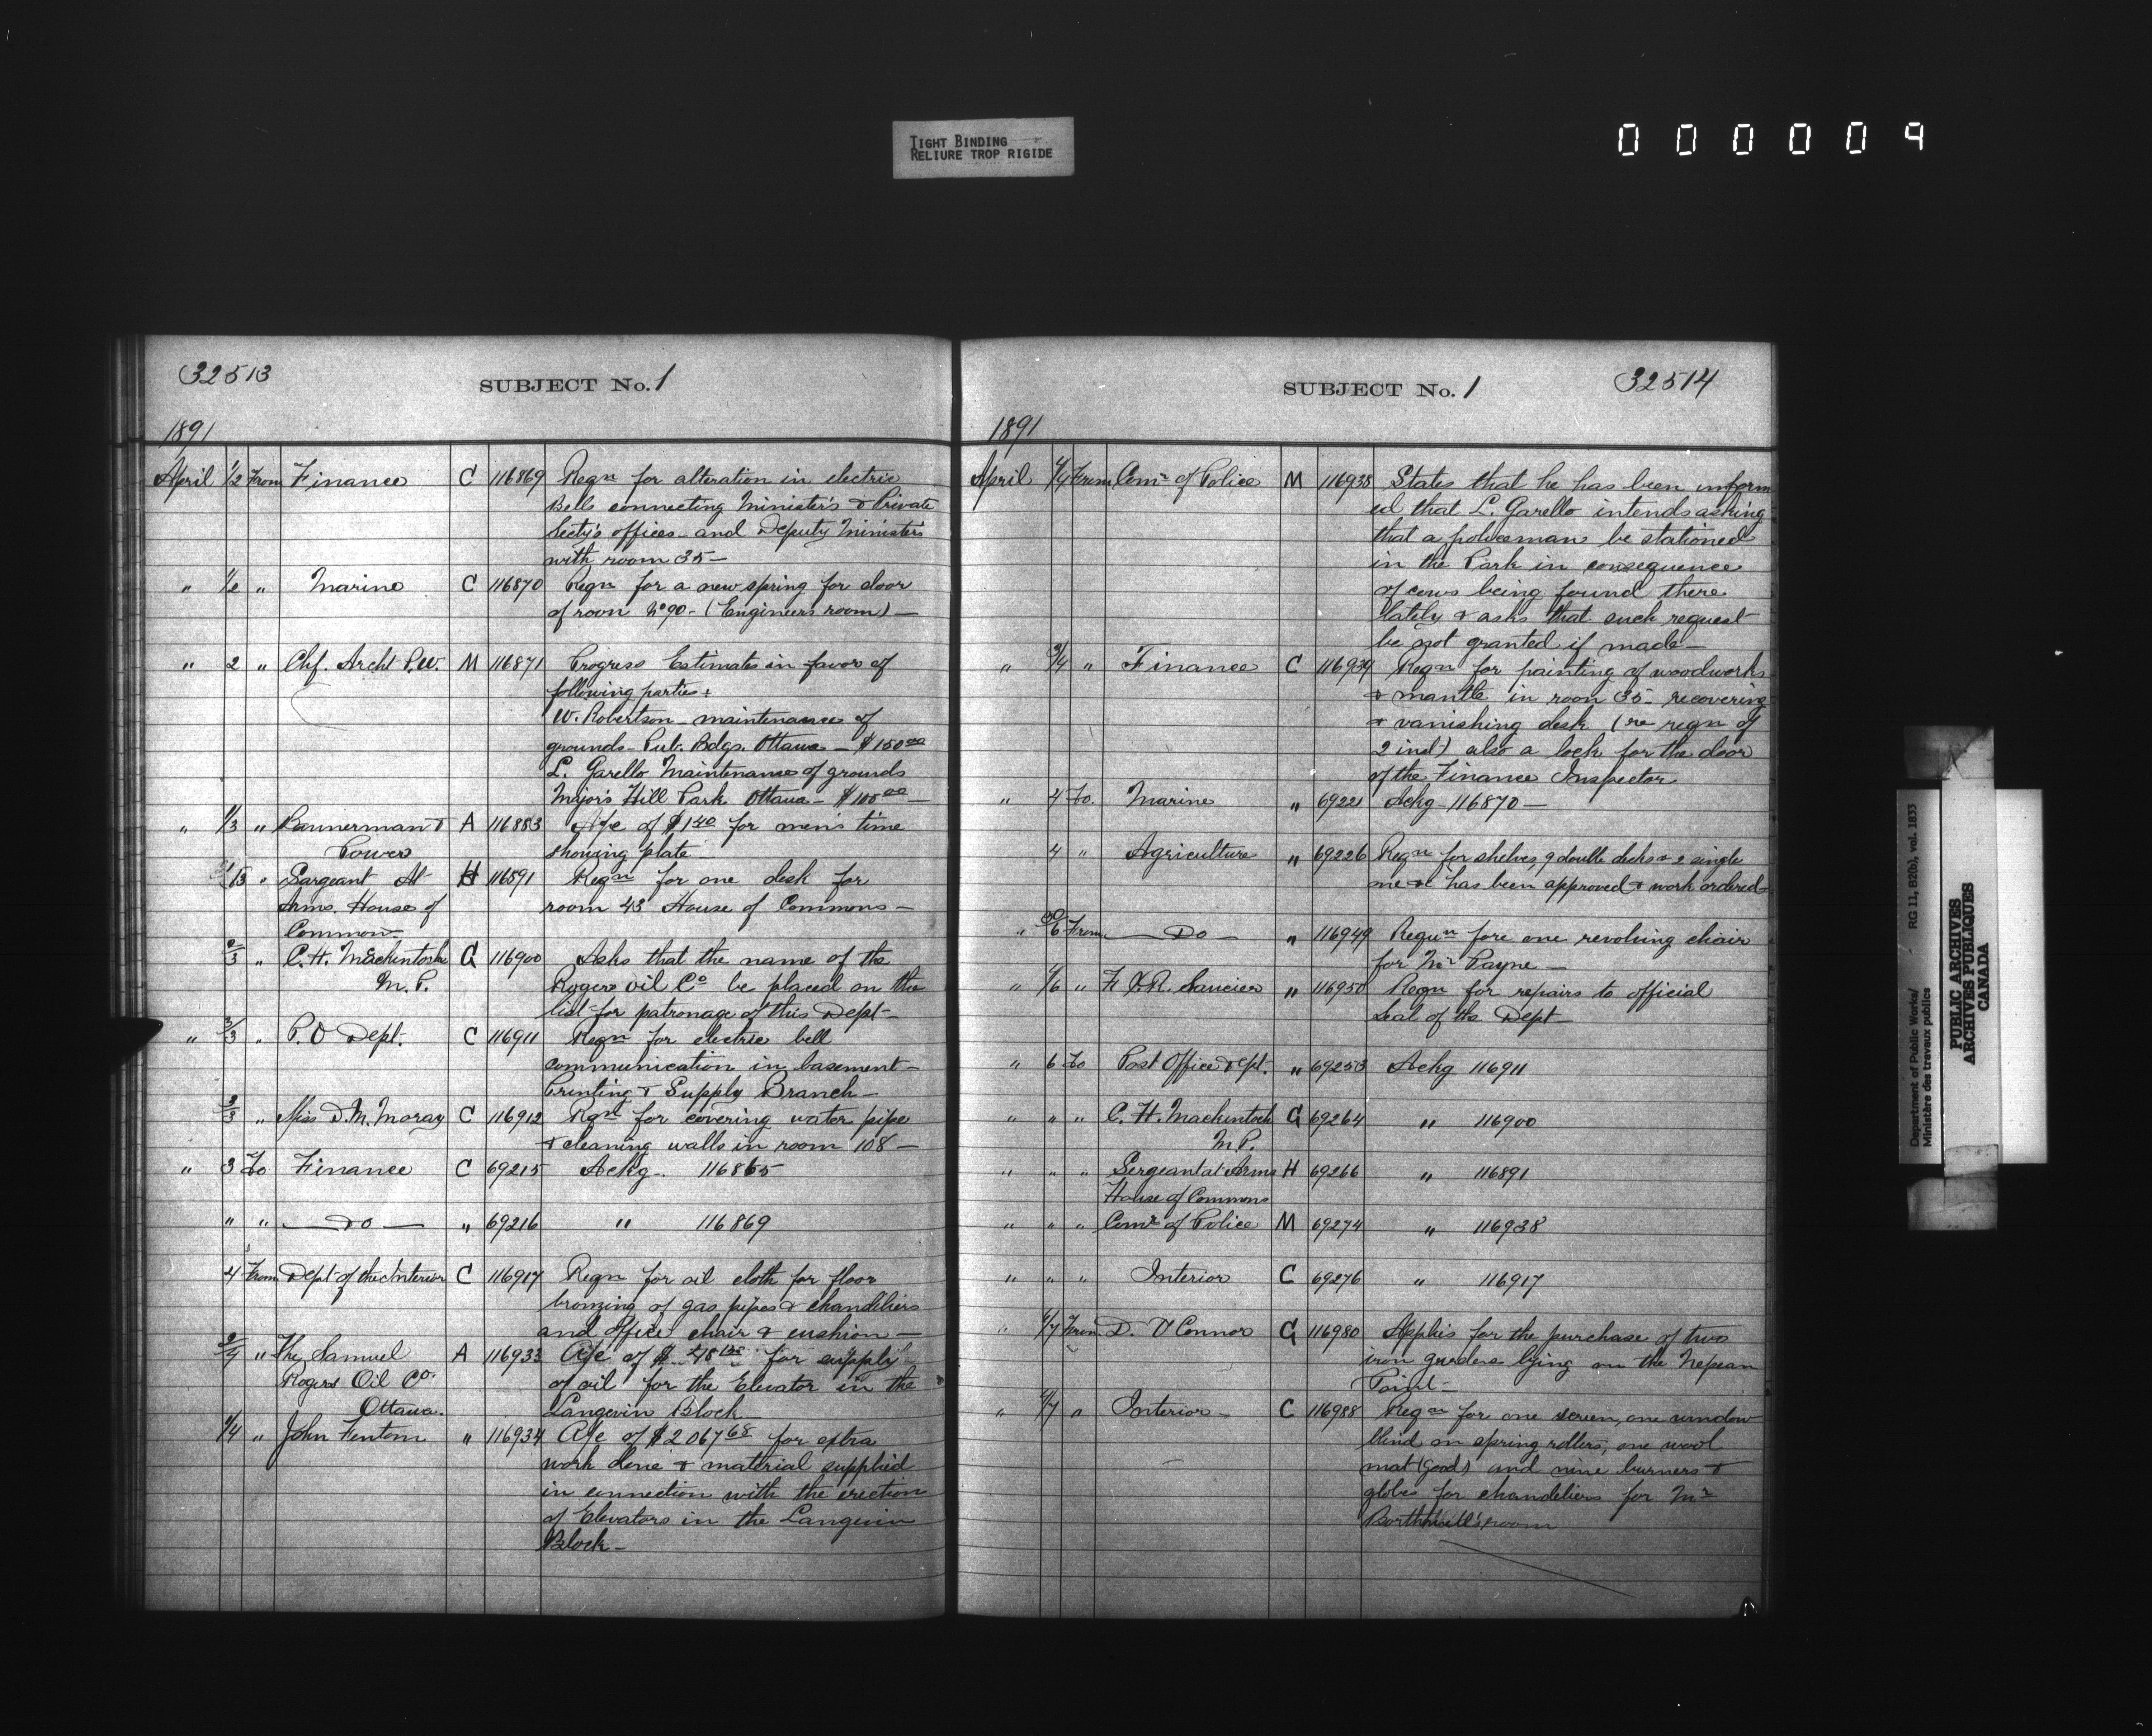 TIGHT BINDING
RELIURE TROP RIGIDE
000009
32513
SUBJECT No. 1
1891
April 1/2 From Finance C 116869 Reqn for alteration in electric
Bells connecting Minister's & Private
Secty's offices and Deputy Ministers
with room 35—
" 1/2 " Marine C 116870 Reqn for a new spring for door
of room No 90 - (Engineers room) —
" 2 " Chf. Archt P.W. M 116871 Progress Estimates in favor of
following parties
W. Robertson maintenance of
grounds - Pub. Bdgs. Ottawa — $150 00
L. Garello Maintenance of grounds
Major's Hill Park Ottawa — $100 00
" 1/3 " Bannerman & A 116883 A/c of $1 40 for men's time
Powers showing plate
" Sargeant At H 116891 Reqn for one desk for
Arms. House of room 43 House of Commons —
Common
2/3 " C. H. Mackintosh G 116900 Asks that the name of the
M. P. Rogers oil Co be placed on the
list for patronage of this Dept —
" 3/3 " P. O Dept. C 116911 Reqn for electric bell
communication in basement —
Printing & Supply Branch —
3/3 " Miss D. M. Moray C 116912 Rqn for covering water pipe
& cleaning walls in room 108 —
" 3 To Finance C 69215 Ackg. 116865
" " — Do — " 69216 " 116869
4 From Dept of the Interior C 116917 Reqn for oil cloth for floor
bronzing of gas pipes & chandeliers
and office chair & cushion —
2/4 " The Samuel A 116933 A/c of $ for supply
Rogers Oil Co of oil for the Elevator in the
Ottawa. Langevin Block
1/4 " John Fentom " 116934 A/c of $2067 68 for extra
work done & material supplied
in connection with the erection
of Elevators in the Langevin
Block —
SUBJECT No. 1
32514
1891
April 4/4 From Comr of Police M 116938 States that he has been inform
ed that L. Garello intends asking
that a policeman be stationed
in the Park in consequence
of cows being found there
lately & asks that such request
be not granted if made —
" 3/4 " Finance C 116939 Reqn for painting of woodworks
& mantle in room 35 - recovering
& vanishing desk (re reqn of
2 inst) also a lock for the door
of the Finance Inspector
" 4 To. Marine " 69221 Ackg - 116870 —
4 " Agriculture " 69226 Reqn for shelves, 9 double desks & 2 single
one & has been approved & work ordered —
" From — Do — " 116949 Requn fore one revolving chair
for Mr Payne —
" 4/6 " F X R. Saucier " 116950 Reqn for repairs to official
Seal of the Dept —
" 6 To Post Office Dept. " 69253 Ackg 116911
" " " C. H. Mackintosh G 69264 " 116900
M P.
" " " Sergeant at Arms H 69266 " 116891
House of Commons
" " " Comr of Police M 69274 " 116938
" " " Interior C 69276 " 116917
" 6/7 From. D. O'Connor G 116980 Applies for the purchase of two
iron gurders lying on the Nepean
Point —
" 4/7 " Interior — C 116988 Reqn for one screen, one window
blind on spring rollers, one wool
mat (Good) and nine burners &
globes for chandeliers for Mr
Borthwell's room
Department of Public Works/ - RG 11, B2(b), vol. 1833
Ministère des travaux publics
PUBLIC ARCHIVES
ARCHIVES PUBLIQUES
CANADA